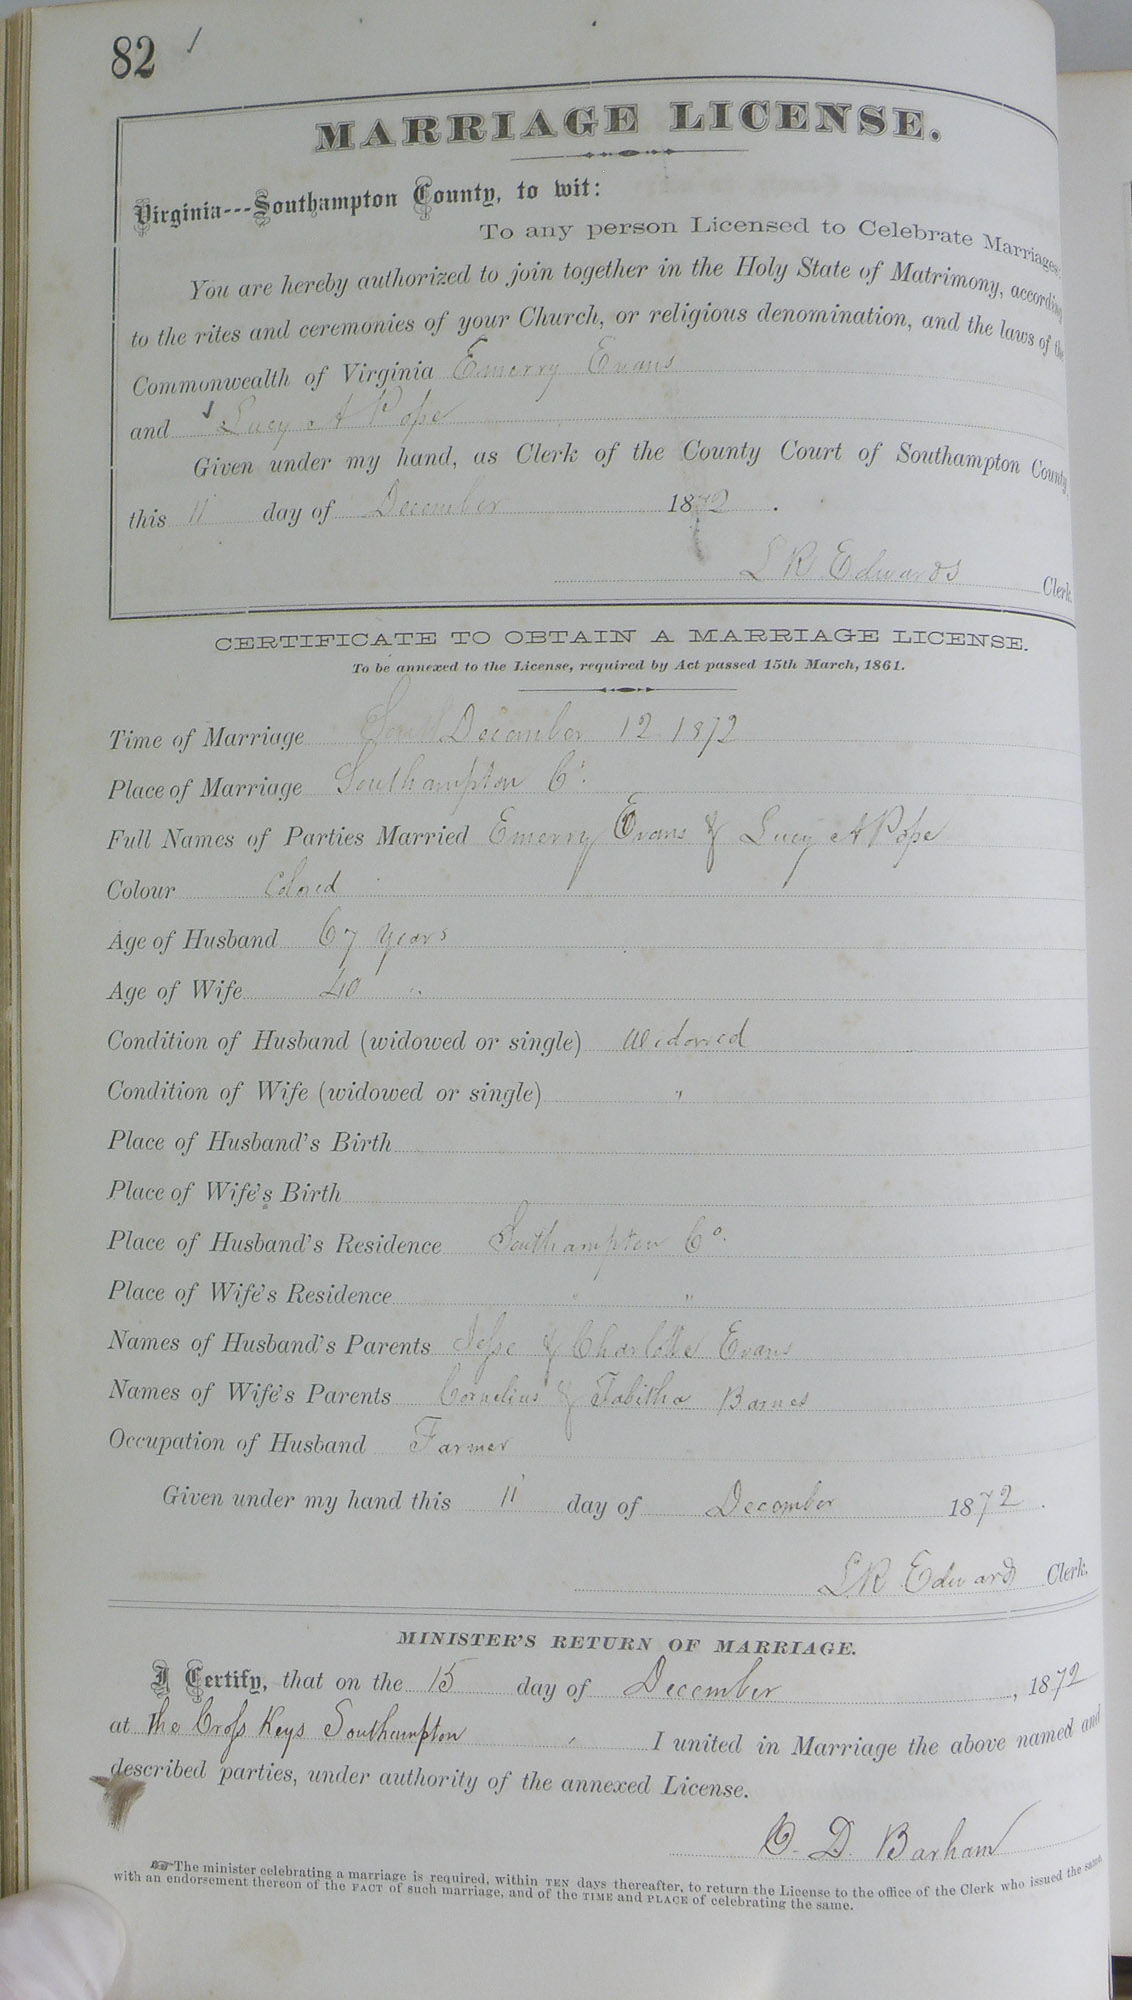 82
MARRIAGE LICENSE.
Virginia---Southampton County, to wit:
To any person Licensed to Celebrate Marriages:
You are hereby authorized to join together in the Holy State of Matrimony, according
to the rites and ceremonies of your Church, or religious denomination, and the laws of the
Commonwealth of Virginia Emerry Evans
and Lucy A Pope
Given under my hand, as Clerk of the County Court of Southampton County,
this 11 day of December 1872.
L R Edwards Clerk.
CERTIFICATE TO OBTAIN A MARRIAGE LICENSE.
To be annexed to the License, required by Act passed 15th March, 1861.
Time of Marriage December 12 1872
Place of Marriage Southampton Co.
Full Names of Parties Married Emerry Evans & Lucy A Pope
Colour Colored
Age of Husband 67 years
Age of Wife 40 "
Condition of Husband (widowed or single) Widowed
Condition of Wife (widowed or single) "
Place of Husband's Birth
Place of Wife's Birth
Place of Husband's Residence Southampton Co.
Place of Wife's Residence " "
Names of Husband's Parents Jesse & Charlotte Evans
Names of Wife's Parents Cornelius & Tabitha Barnes
Occupation of Husband Farmer
Given under my hand this 11 day of December 1872.
L R Edwards Clerk.
MINISTER'S RETURN OF MARRIAGE.
I Certify, that on the 15 day of December, 1872
at the Cross Keys Southampton I united in Marriage the above named and
described parties, under authority of the annexed License.
D. Barham
The minister celebrating a marriage is required, within TEN days thereafter, to return the License to the office of the Clerk who issued the same
with an endorsement thereon of the FACT of such marriage, and of the TIME and PLACE of celebrating the same.